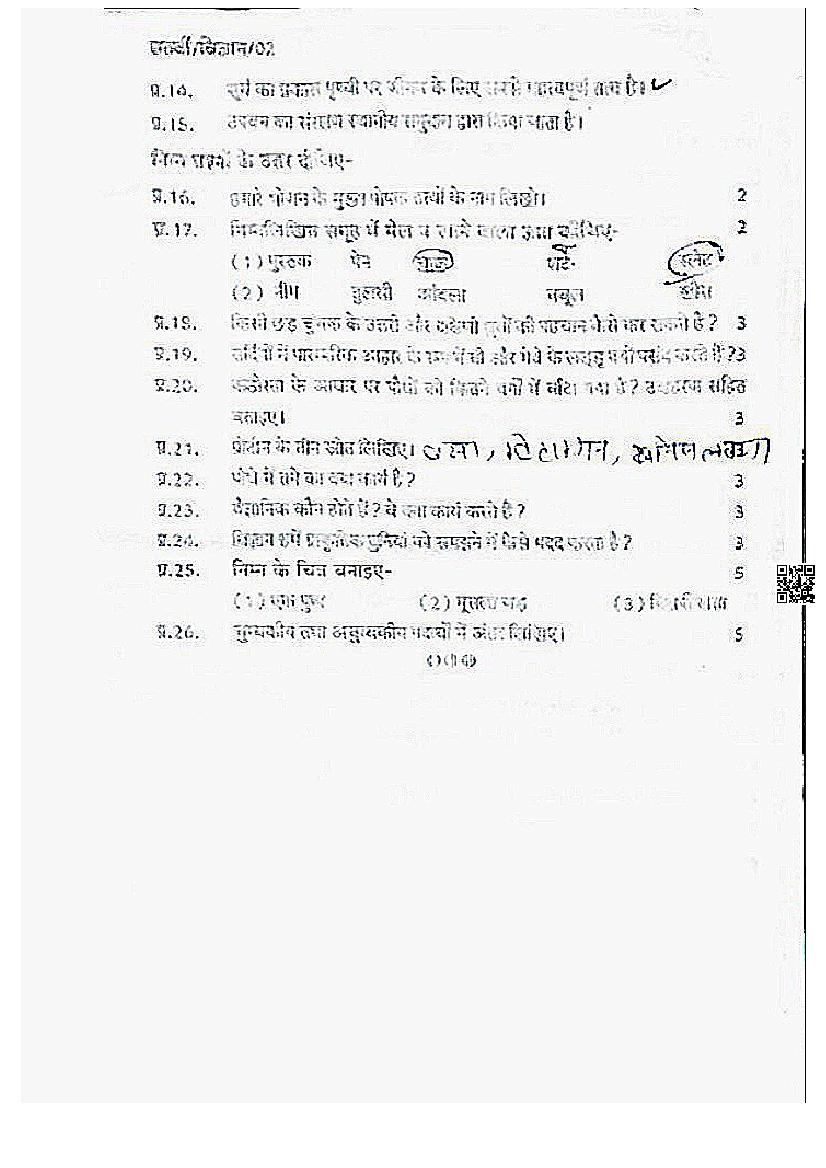 प्र.14. सूर्य का प्रकाश पृथ्वी पर जीवन के लिए सबसे महत्वपूर्ण तत्व है।
प्र.15. उपवन का संरक्षण स्थानीय समुदाय द्वारा किया जाता है।
निम्न प्रश्नों के उत्तर दीजिए-
प्र.16. हमारे भोजन के मुख्य पोषक तत्वों के नाम लिखो। 2
प्र.17. निम्नलिखित समूह में मेल न खाने वाला अलग कीजिए- 2
(1) पुस्तक पेन चाक शर्ट- स्लेट
(2) नीम तुलसी आँवला बबूल शीशम
प्र.18. किसी छड़ चुंबक के उत्तरी और दक्षिणी ध्रुवों की पहचान कैसे कर सकते हैं? 3
प्र.19. सर्दियों में पारम्परिक आहार के रूप में घी और मेवे के लड्डू क्यों पसंद करते हैं? 3
प्र.20. कठोरता के आधार पर पौधों को कितने वर्गों में बाँटा गया है? उदाहरण सहित
बताइए। 3
प्र.21. प्रोटीन के तीन स्रोत लिखिए। वसा, विटामिन, खनिज लवण
प्र.22. पौधे में तने का क्या कार्य है? 3
प्र.23. वैज्ञानिक कौन होते हैं? वे क्या कार्य करते हैं? 3
प्र.24. विज्ञान हमें प्राकृतिक दुनिया को समझने में कैसे मदद करता है? 3
प्र.25. निम्न के चित्र बनाइए- 5
(1) (2) मूसला जड़ (3)
प्र.26. चुम्बकीय तथा अचुम्बकीय पदार्थों में अंतर लिखिए। 5